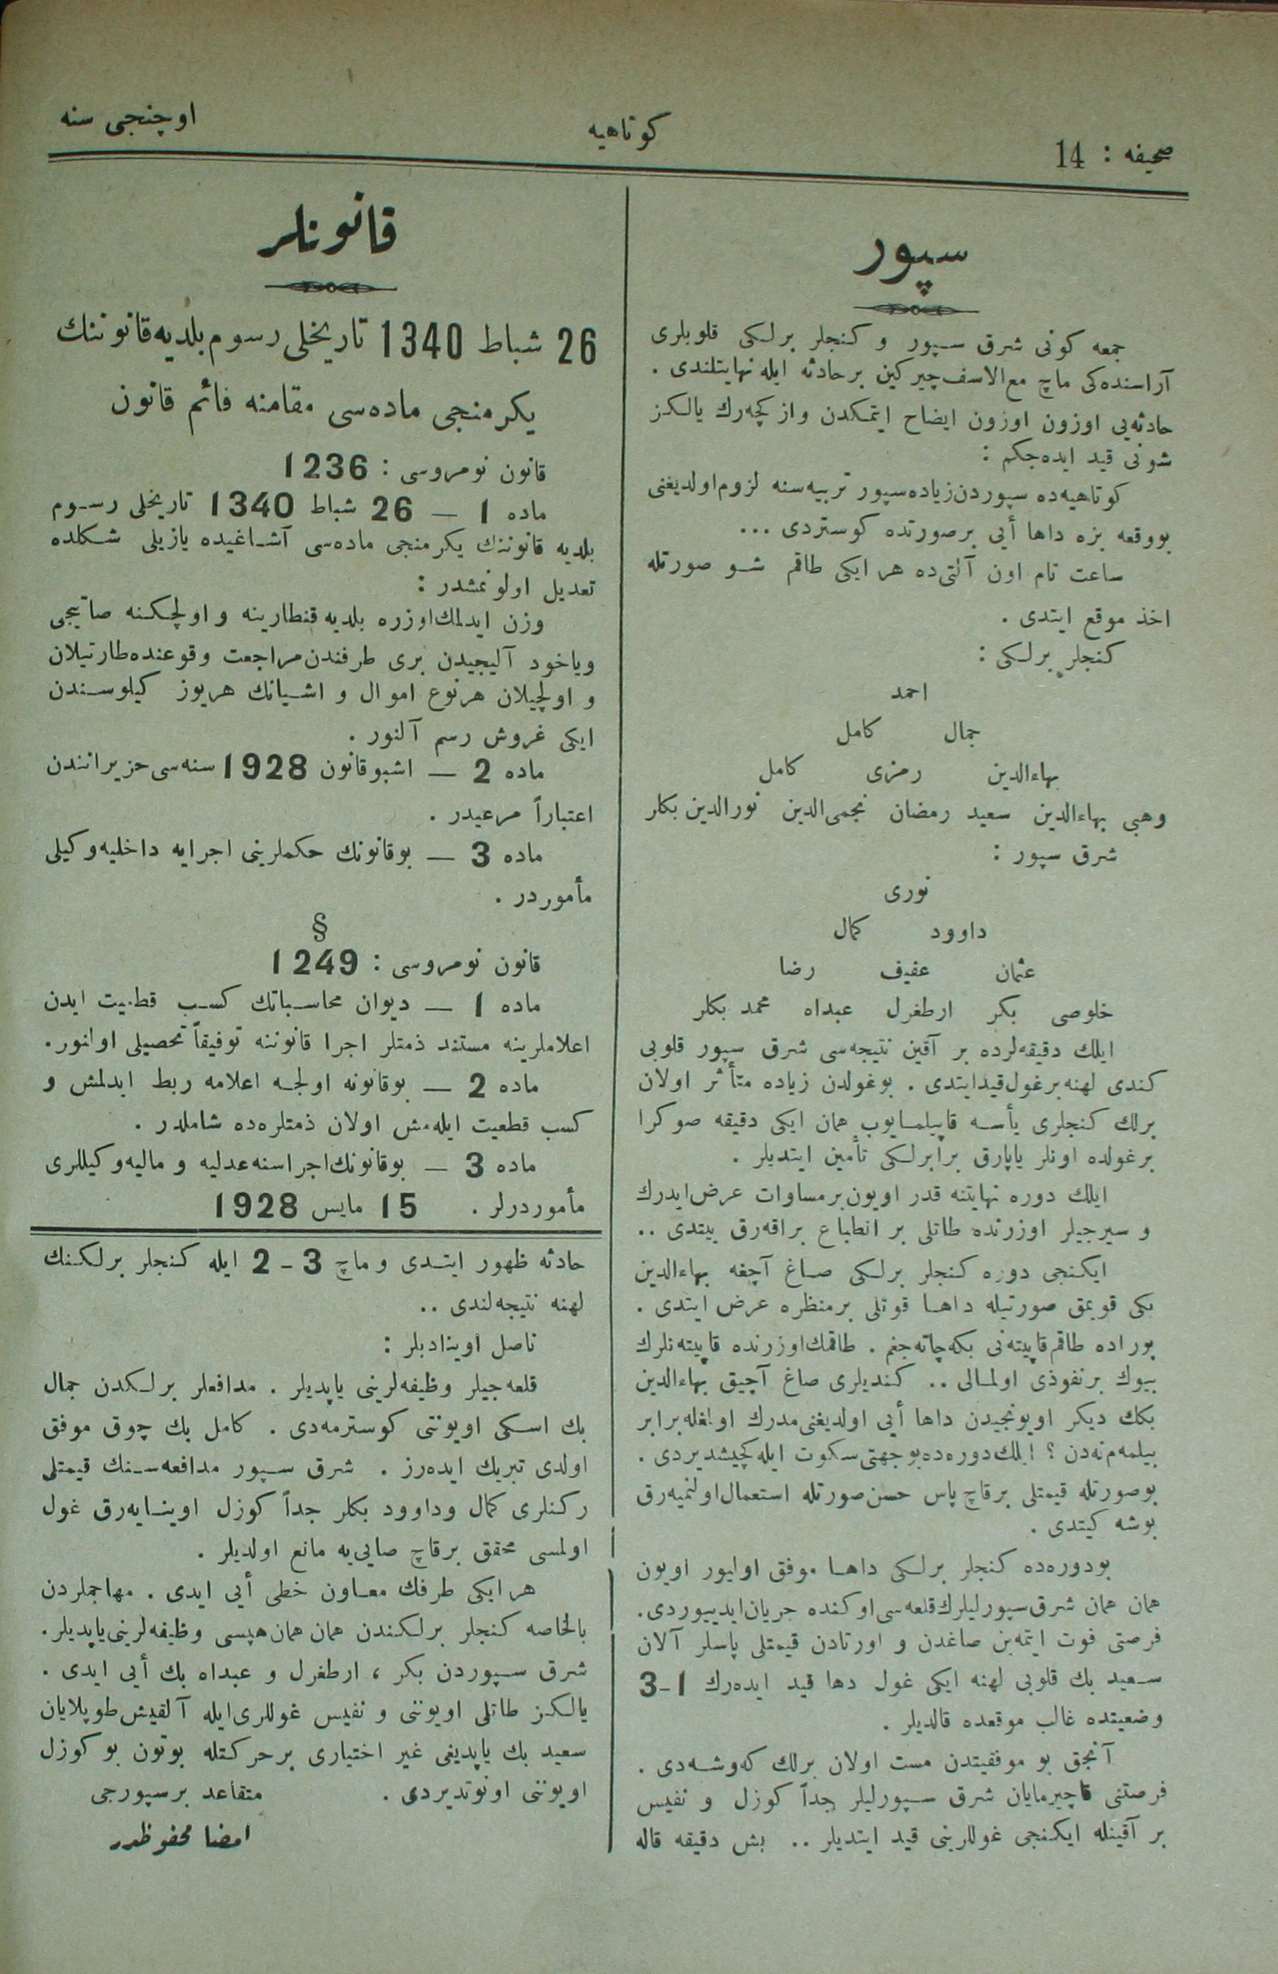 صحيفه : 14
كوتاهيه
اوچنجى سنه
سپور
جمعه كونى شرق سپور و كنجلر برلكى قلوبلرى
آراسنده‌كى ماچ مع‌الاسف چيركين برحادثه ايله نهايتلندى .
حادثه‌يى اوزون اوزون ايضاح ايتمكدن واز كچه‌رك يالكز
شونى قيد ايده‌جكم :
كوتاهيه‌ده سپوردن زياده سپور تربيه‌سنه لزوم اولديغنى
بووقعه بزه داها أيى برصورتده كوستردى ...
ساعت تام اون آلتى‌ده هر ايكى طاقم شو صورتله
اخذ موقع ايتدى .
كنجلر برلكى :
احمد
جمال كامل
بهاءالدين رمزى كامل
وهبى بهاءالدين سعيد رمضان نجمى‌الدين نورالدين بكلر
شرق سپور :
نورى
داوود كمال
عثمان عفيف رضا
خلوصى بكر ارطغرل عبداه محمد بكلر
ايلك دقيقه‌لرده بر آقين نتيجه‌سى شرق سپور قلوبى
كندى لهنه برغول قيدايتدى . بوغولدن زياده متأثر اولان
برلك كنجلرى يأسه قاپيلمايوب همان ايكى دقيقه صوكرا
برغولده اونلر ياپارق برابرلكى تأمين ايتديلر .
ايلك دوره نهايتنه قدر اويون برمساوات عرض ايدرك
و سيرجيلر اوزرنده طاتلى بر انطباع براقه‌رق بيتدى ..
ايكنجى دوره كنجلر برلكى صاغ آچغه بهاءالدين
بكى قويمق صورتيله داها قوتلى برمنظره عرض ايتدى .
بوراده طاقم قاپيته‌نى بكه چاته‌جغم . طاقمك اوزرنده قاپيته‌نلرك
بيوك برنفوذى اولمالى .. كنديلرى صاغ آچيق بهاءالدين
بكك ديكر اويونجيدن داها أيى اولديغنى مدرك اولمغله برابر
بيلمه‌م نه‌دن ؟ ايلك دوره‌ده بو جهتى سكوت ايله كچيشديردى .
بوصورتله قيمتلى برقاچ پاس حسن صورتله استعمال اولنميه‌رق
بوشه كيتدى .
بودوره‌ده كنجلر برلكى داها موفق اوليور اويون
همان همان شرق سپورليلرك قلعه‌سى اوكنده جريان ايدييوردى.
فرصتى فوت ايتمه‌ين صاغدن و اورتادن قيمتلى پاسلر آلان
سعيد بك قلوبى لهنه ايكى غول دها قيد ايده‌رك 1-3
وضعيتده غالب موقعده قالديلر .
آنجق بو موفقيتدن مست اولان برلك كه‌وشه‌دى .
فرصتنى قاچيرمايان شرق سپورليلر جداً كوزل و نفيس
بر آقينله ايكنجى غوللرينى قيد ايتديلر .. بش دقيقه قاله
قانونلر
26 شباط 1340 تاريخلى رسوم بلديه قانوننك
يكرمنجى ماده‌سى مقامنه قائم قانون
قانون نومروسى : 1236
ماده 1 — 26 شباط 1340 تاريخلى رسوم
بلديه قانوننك يكرمنجى ماده‌سى آشاغيده يازيلى شكلده
تعديل اولونمشدر :
وزن ايدلمك اوزره بلديه قنطارينه و اولچكنه صاتيجى
وياخود آليجيدن برى طرفندن مراجعت وقوعنده طارتيلان
و اولچيلان هرنوع اموال و اشيانك هريوز كيلوسندن
ايكى غروش رسم آلنور .
ماده 2 — اشبو قانون 1928 سنه‌سى حزيراننـدن
اعتباراً مرعيدر .
ماده 3 — بوقانونك حكملرينى اجرايه داخليه وكيلى
مأموردر .
§
قانون نومروسى : 1249
ماده 1 — ديوان محاسباتك كسب قطعيت ايدن
اعلاملرينه مستند ذمتلر اجرا قانوننه توفيقاً تحصيلى اولنور.
ماده 2 — بوقانونه اولجه اعلامه ربط ايدلمش و
كسب قطعيت ايله‌مش اولان ذمتلره‌ده شاملدر .
ماده 3 — بوقانونك اجراسنه عدليه و ماليه وكيللرى
مأموردرلر . 15 مايس 1928
حادثه ظهور ايتدى و ماچ 3 - 2 ايله كنجلر برلكنك
لهنه نتيجه‌لندى ..
ناصل اوينادىلر :
قلعه‌جيلر وظيفه‌لرينى ياپديلر . مدافعلر برلكدن جمال
بك اسكى اويوننى كوسترمه‌دى . كامل بك چوق موفق
اولدى تبريك ايده‌رز . شرق سپور مدافعه‌سنك قيمتلى
ركنلرى كمال وداوود بكلر جداً كوزل اوينايه‌رق غول
اولمسى محقق برقاچ صايى‌يه مانع اولديلر .
هر ايكى طرفك معاون خطى أيى ايدى . مهاجملردن
بالخاصه كنجلر برلكندن همان همان هپسى وظيفه‌لرينى ياپديلر.
شرق سپوردن بكر ، ارطغرل و عبداه بك أيى ايدى .
يالكز طاتلى اويوننى و نفيس غوللرى ايله آلقيش طوپلايان
سعيد بك ياپديغى غير اختيارى برحركتله بوتون بو كوزل
اويوننى اونوتديردى . متقاعد برسپورجى
امضا محفوظدر